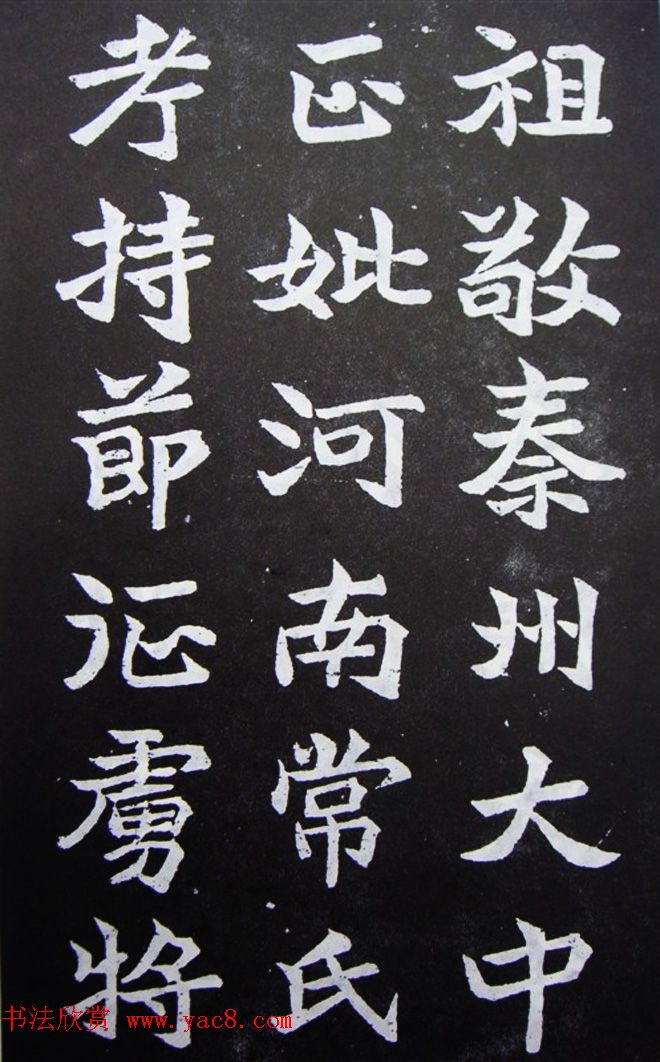 祖敬秦州大中
正妣河南常氏
考持節征虜將
书法欣赏 www.yac8.com